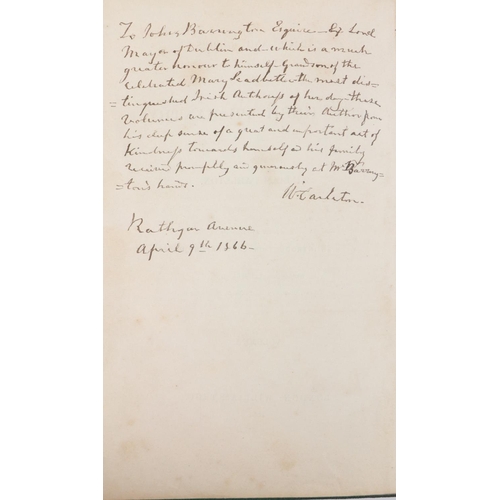 To John Barrington Esquire - Ex Lord
Mayor of Dublin and - which is a much
greater honour to himself - Grandson of the
celebrated Mary Leadbeater the most dis-
=tinguished Irish Authoress of her day - these
volumes are presented by their Author from
his deep sense of a great and important act of
kindness towards himself and his family
received promptly and generously at Mr Barring-
=ton's hands.
W. Carleton.
Rathgar Avenue
April 9th 1866 -